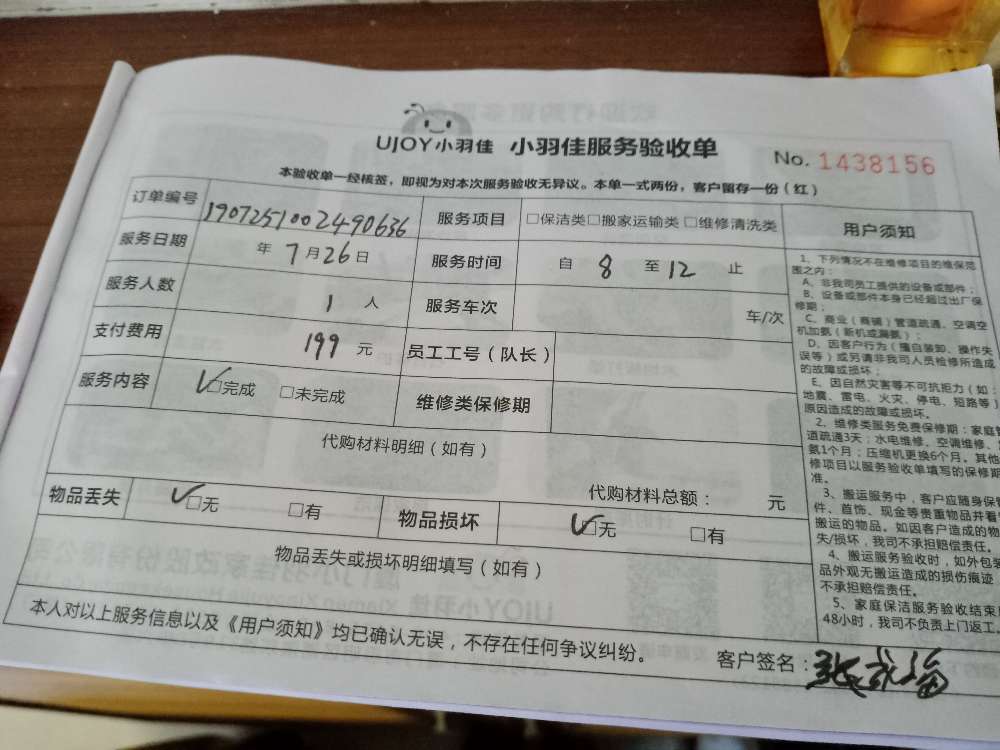 UJOY小羽佳 小羽佳服务验收单 No. 1438156
本验收单一经核签，即视为对本次服务验收无异议。本单一式两份，客户留存一份（红）
订单编号 1907251002490636 服务项目 □保洁类□搬家运输类 □维修清洗类
服务日期 年 7月26日 服务时间 自 8 至 12 止
服务人数 1 人 服务车次 车/次
支付费用 199 元 员工工号（队长）
服务内容 ✓□完成 □未完成 维修类保修期
代购材料明细（如有）
代购材料总额： 元
物品丢失 ✓□无 □有 物品损坏 ✓□无 □有
物品丢失或损坏明细填写（如有）
本人对以上服务信息以及《用户须知》均已确认无误，不存在任何争议纠纷。
客户签名：
用户须知
1、下列情况不在维修项目的维保范
围之内：
A、非我司员工提供的设备或部件；
B、设备或部件本身已经超过出厂保
修期；
C、商业（商铺）管道疏通、空调空
机加氨（新机或漏氨）；
D、因客户行为（擅自装卸、操作失
误等）或另请非我司人员检修所造成
的故障或损坏；
E、因自然灾害等不可抗拒力（如：
地震、雷电、火灾、停电、短路等）
原因造成的故障或损坏。
2、维修类服务免费保修期：家庭管
道疏通3天；水电维修、空调维修、
氨1个月；压缩机更换6个月。其他
修项目以服务验收单填写的保修期
准。
3、搬运服务中，客户应随身保管
件、首饰、现金等贵重物品并看
搬运的物品。如因客户造成的物
失/损坏，我司不承担赔偿责任。
4、搬运服务验收时，如外包装
品外观无搬运造成的损伤痕迹
不承担赔偿责任。
5、家庭保洁服务验收结束
48小时，我司不负责上门返工。